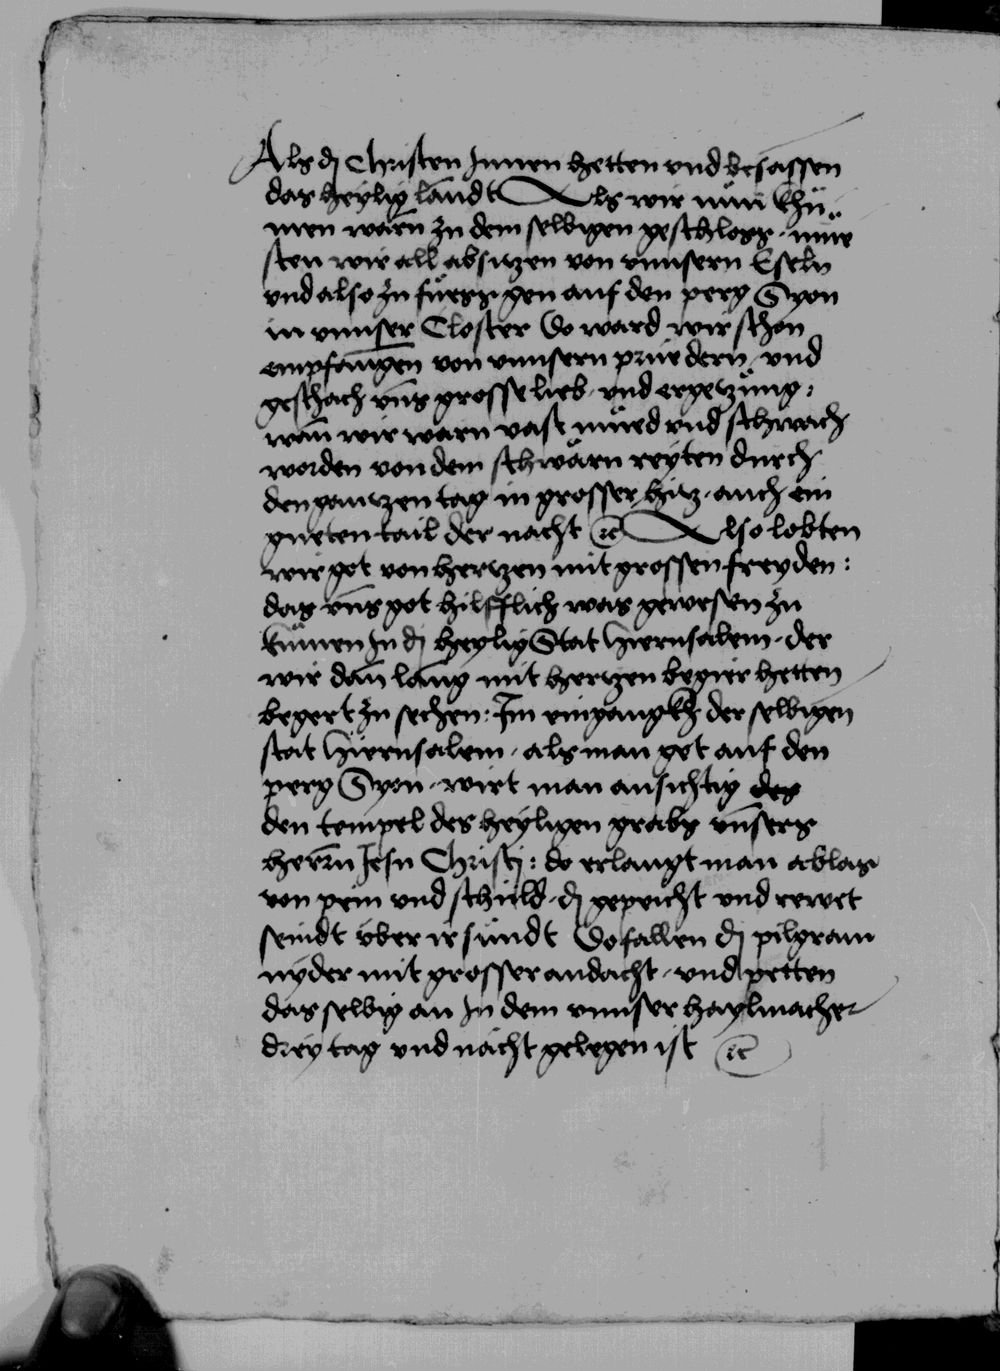 Als dj Christen Innen hetten und besassen
das heylig landt Als wir nun khu¬
men warn zu dem selbigen geschloss · mue
sten wir all absitzen von unnsern Eseln
und also zu fuessz gen auf den perg Syon
in unnser Closter Do ward wir schon
empfangen von unnsern prüedern · und
geschach uns grosse lieb · und ergetzung :
wan wir warn vast müed und schwach
worden von dem schwärn reyten durch
den gantzen tag in grosser hitz · auch ein
gueten tail der nacht etc Also lobten
wir got von hertzen mit grossen freyden :
das uns got hilfflich was gewesen zu
kumen In dj heylig Stat Hierusalem · der
wir dan lang mit hertzen begier hetten
begert zu sechen : Im eingangkh der selbigen
stat Hierusalem · als man get auf den
perg Syon · wirt man ansichtig des
den tempel des heyligen grabs unsers
herrn Jesu Christj : do erlangt man ablas
von pein und schuld · dj gepeicht und rewet
seindt über ir sündt Do fallen dj pilgram
nyder mit grosser andacht · und petten
das selbig an In dem unnser haylmacher
drey tag und nacht gelegen ist etc